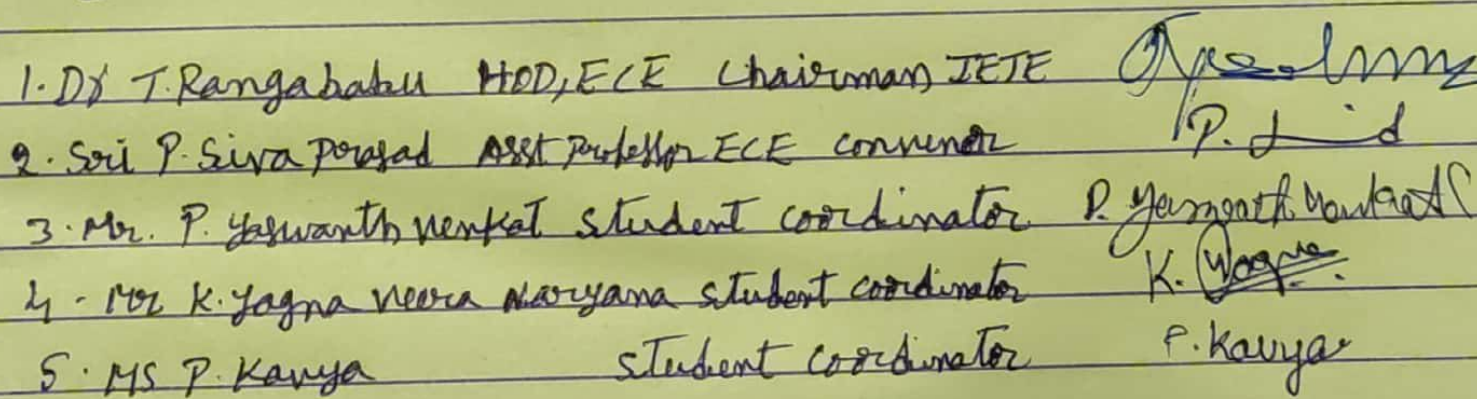 1. Dr T. Rangababu HOD, ECE Chairman, IETE
2. Sri P. Siva Prasad Asst Professor ECE convenor P.
3. Mr. P. Yaswanth Venkat student coordinator P. Yaswanth Venkat
4. Mr K. Yagna Veera Naryana student coordinator K. Yagna
5. MS P. Kavya student coordinator P. Kavya